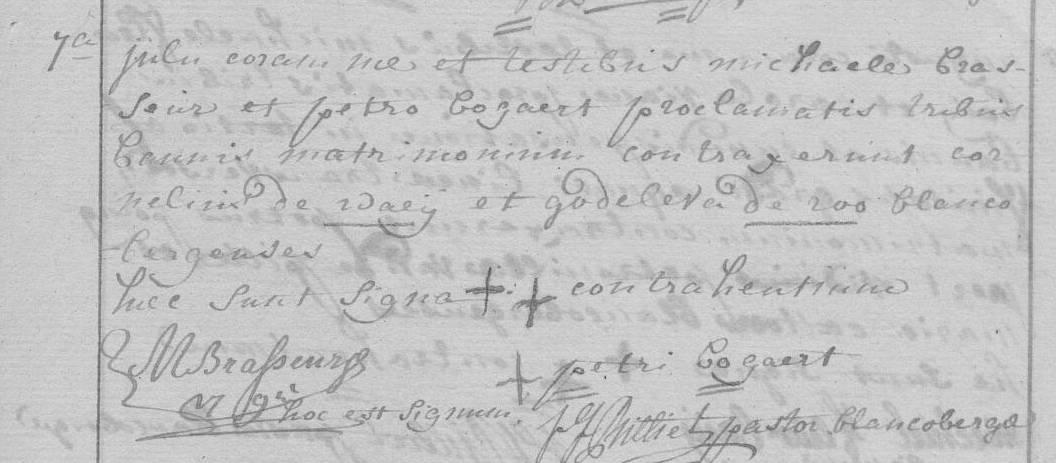 7a julii coram me et testibus michaele bras-
seur et petro bogaert proclamatis tribus
bannis matrimonium contraxerunt cor
nelius de waeij et godeleva de roo blanco
bergenses
hæc sunt signa + + contrahentium
MBrasseur + petri bogaert
hoc est signum. pastor blancobergæ